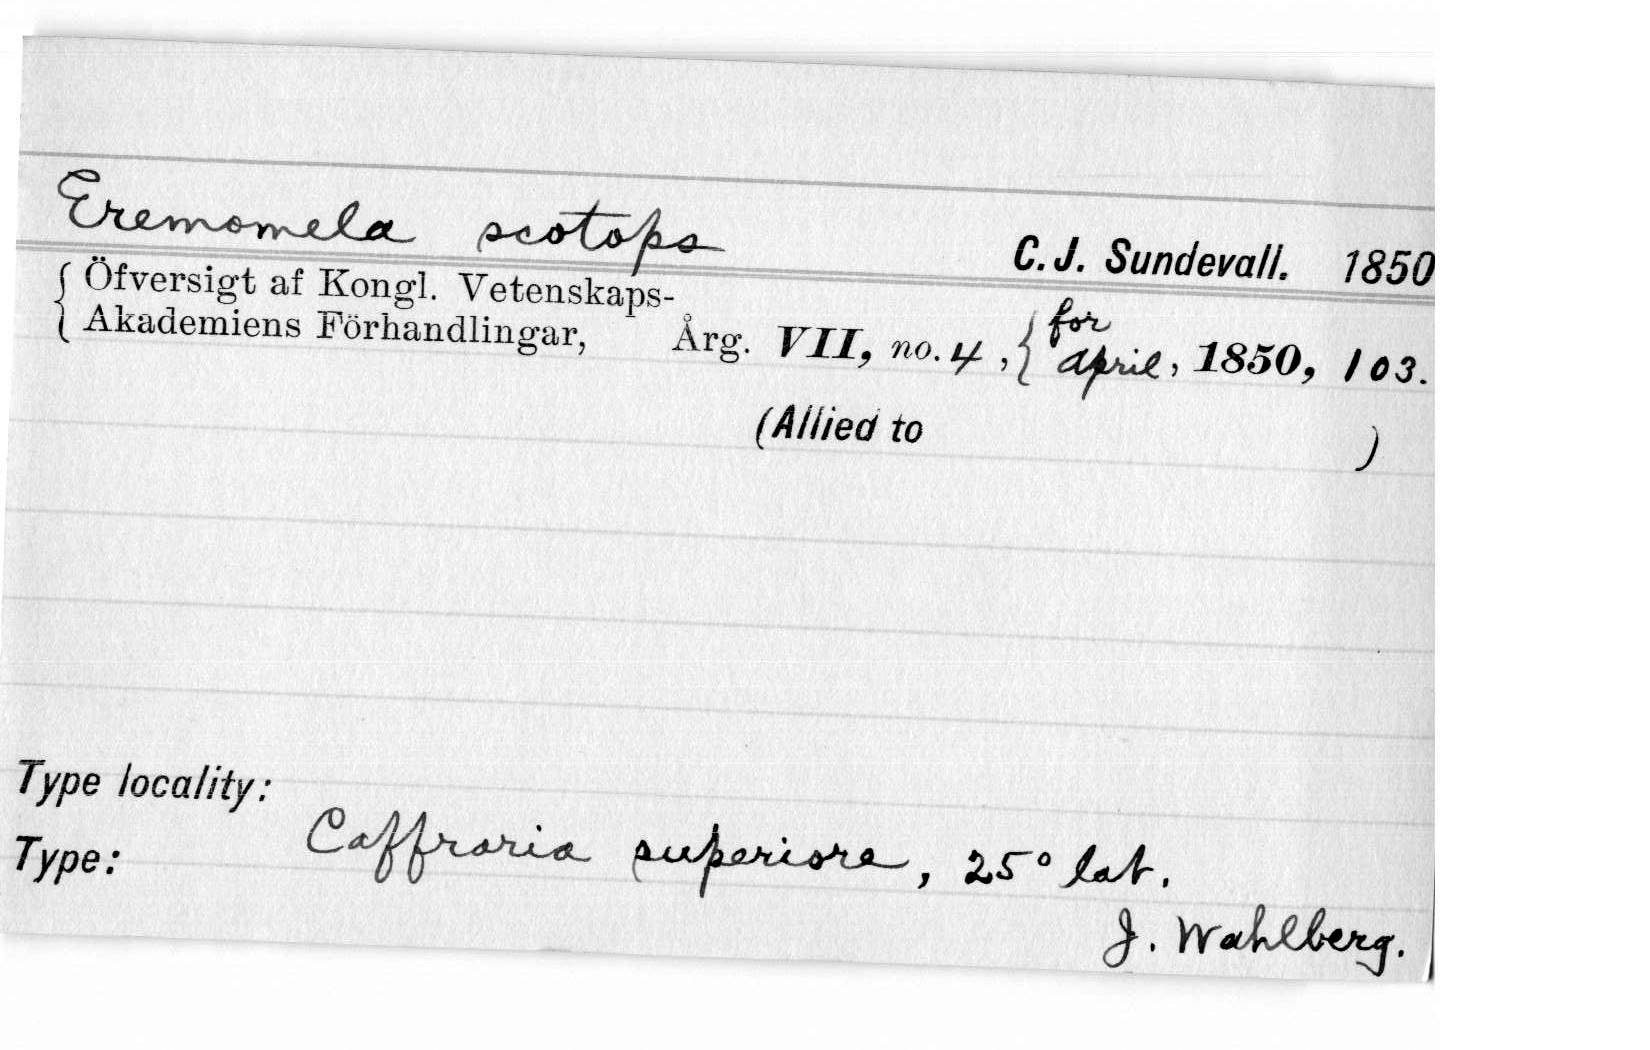 Eremomela scotops
C. J. Sundevall. 1850
Öfversigt af Kongl. Vetenskaps-
Akademiens Förhandlingar, Årg. VII, no. 4, { for April, 1850, 103.
(Allied to )
Type locality:
Caffraria superiore, 25° lat.
Type:
J. Wahlberg.